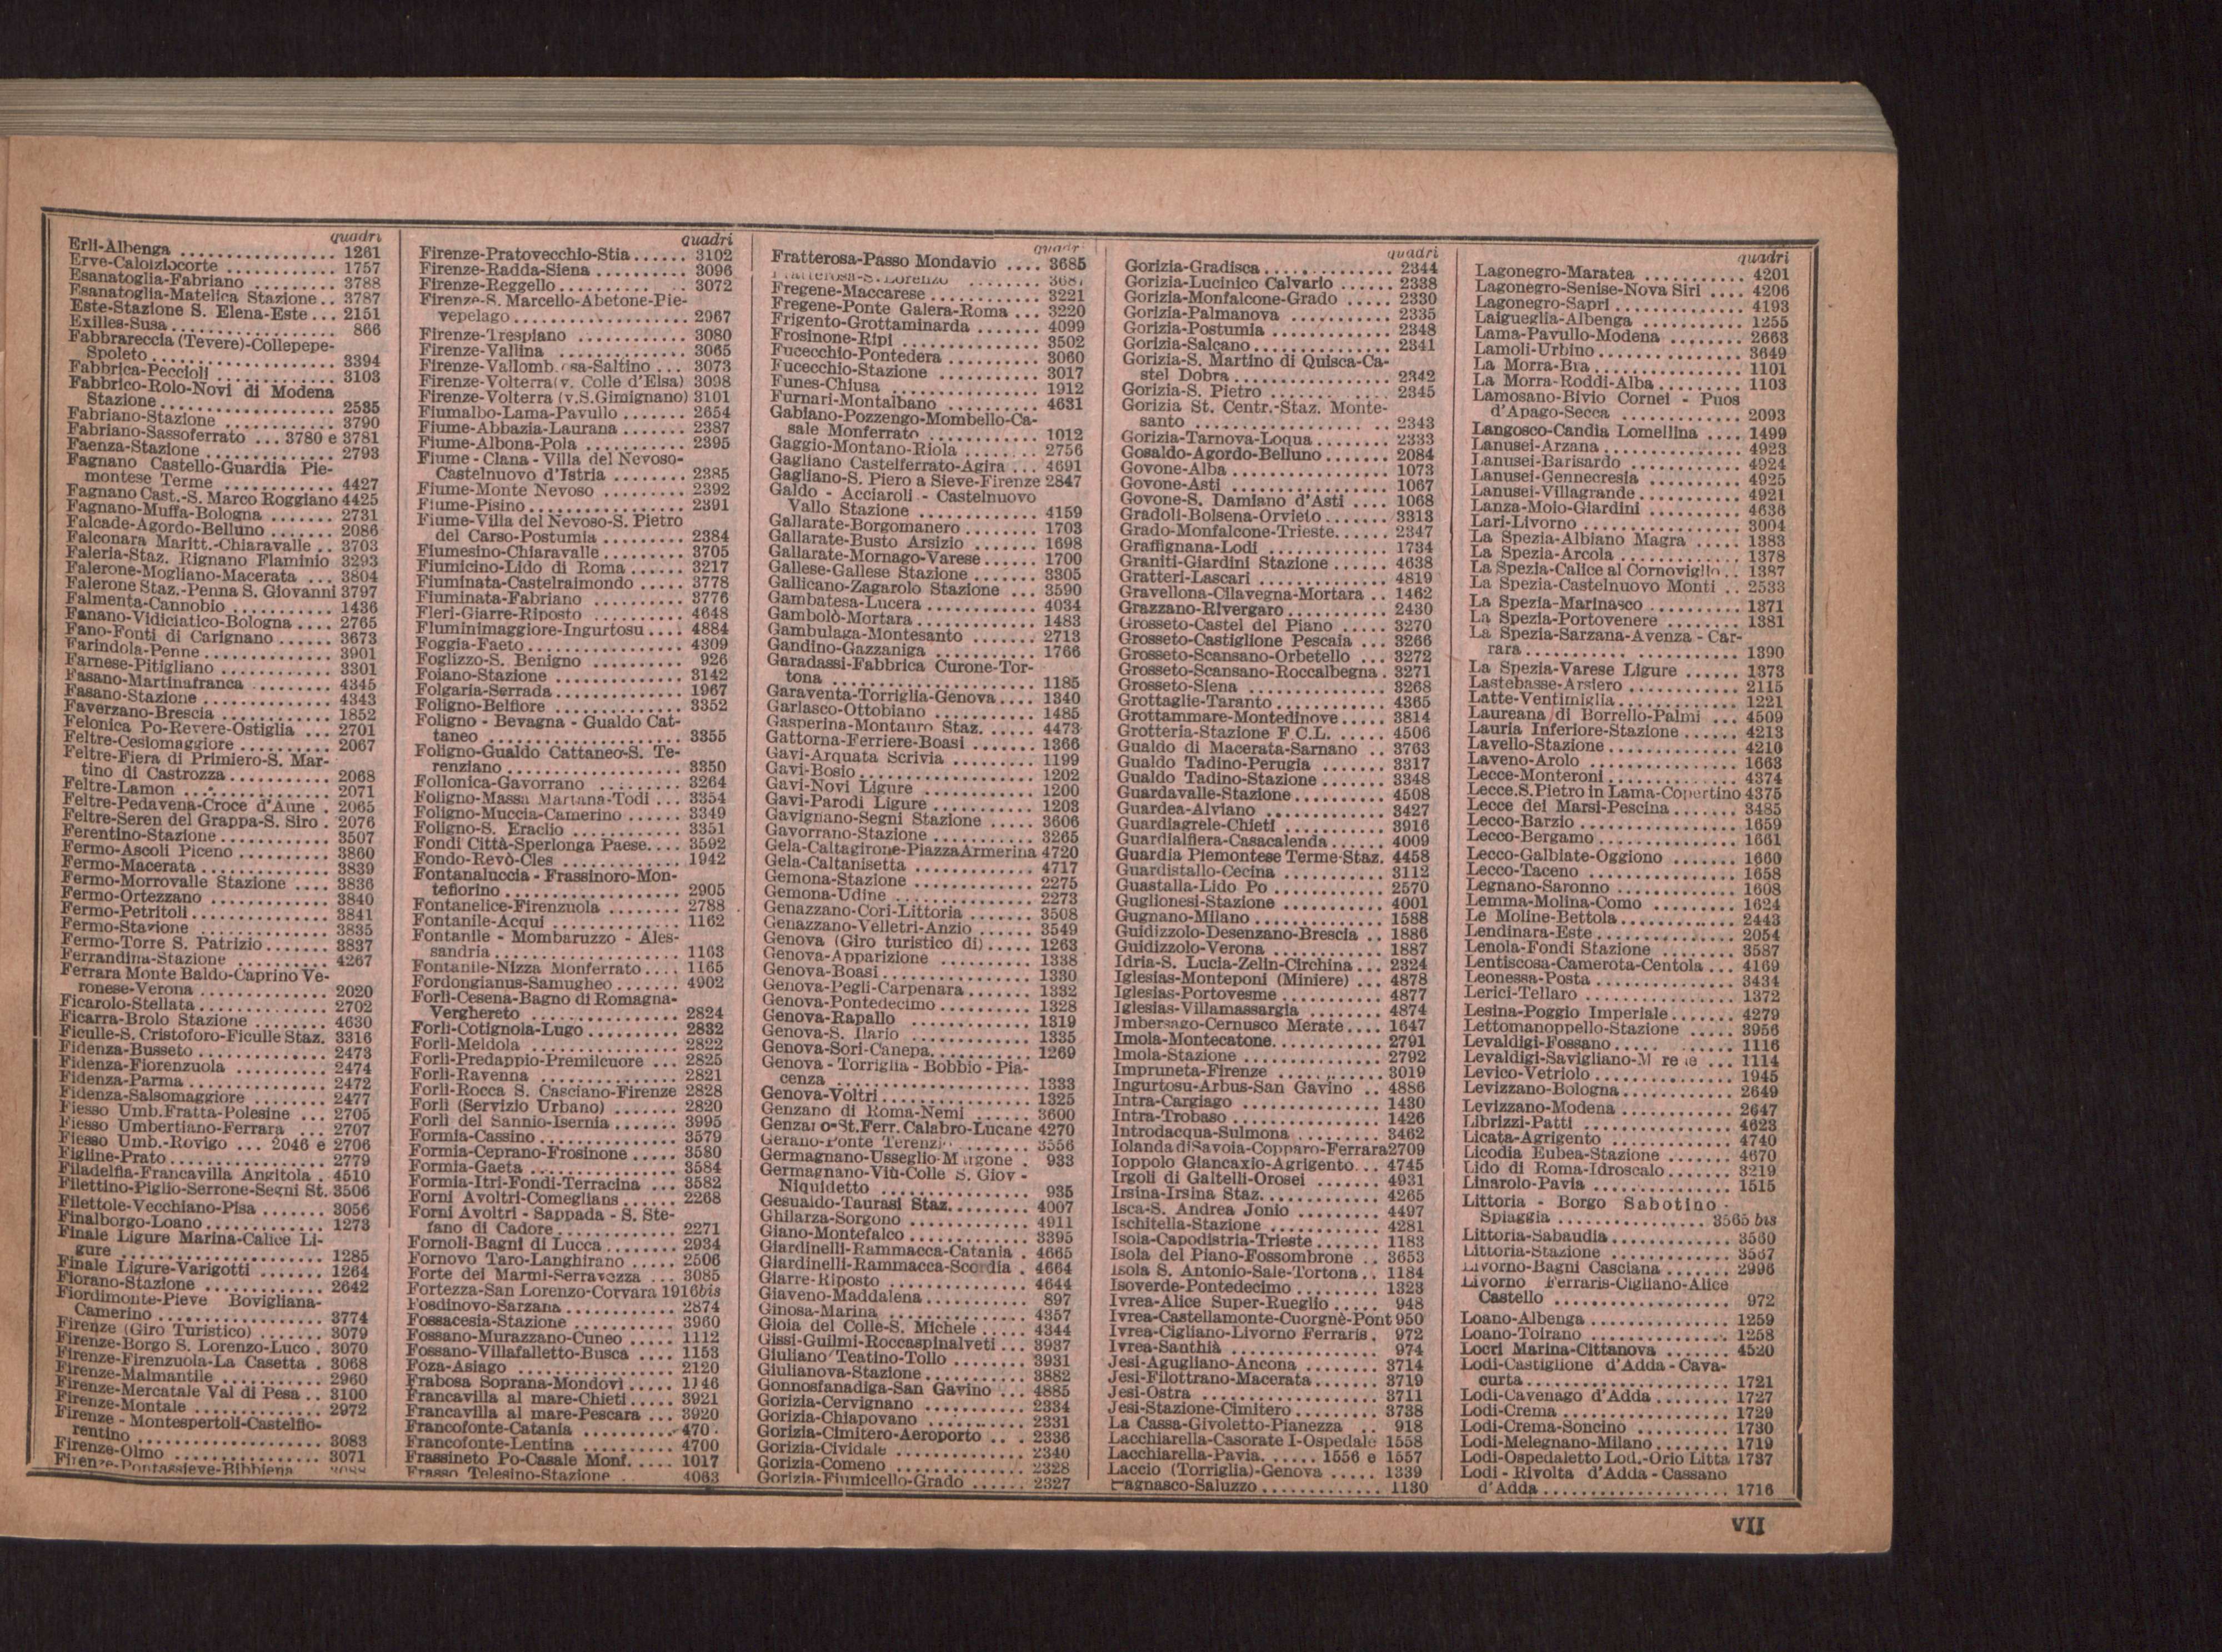 quadri
Erli-Albenga ................. 1261
Erve-Caloiziocorte ............ 1757
Esanatoglia-Fabriano ......... 3788
Esanatoglia-Matelica Stazione .. 3787
Este-Stazione S. Elena-Este ... 2151
Exilles-Susa ................. 866
Fabbrareccia (Tevere)-Collepepe-
Spoleto ................... 3394
Fabbrica-Peccioli ............ 3103
Fabbrico-Rolo-Novi di Modena
Stazione ................... 2535
Fabriano-Stazione ............ 3790
Fabriano-Sassoferrato ... 3780 e 3781
Faenza-Stazione .............. 2793
Fagnano Castello-Guardia Pie-
montese Terme ............ 4427
Fagnano Cast.-S. Marco Roggiano 4425
Fagnano-Muffa-Bologna ....... 2731
Falcade-Agordo-Belluno ....... 2086
Falconara Maritt.-Chiaravalle .. 3703
Faleria-Staz. Rignano Flaminio 3293
Falerone-Mogliano-Macerata ... 3804
Falerone Staz.-Penna S. Giovanni 3797
Falmenta-Cannobio ........... 1436
Fanano-Vidiciatico-Bologna .... 2765
Fano-Fonti di Carignano ...... 3673
Farindola-Penne .............. 3901
Farnese-Pitigliano ............ 3301
Fasano-Martinafranca ........ 4345
Fasano-Stazione .............. 4343
Faverzano-Brescia ............ 1852
Felonica Po-Revere-Ostiglia ... 2701
Feltre-Cesiomaggiore .......... 2067
Feltre-Fiera di Primiero-S. Mar-
tino di Castrozza ........... 2068
Feltre-Lamon ................ 2071
Feltre-Pedavena-Croce d'Aune . 2065
Feltre-Seren del Grappa-S. Siro . 2076
Ferentino-Stazione ............ 3507
Fermo-Ascoli Piceno .......... 3860
Fermo-Macerata .............. 3839
Fermo-Morrovalle Stazione .... 3836
Fermo-Ortezzano ............. 3840
Fermo-Petritoli ............... 3841
Fermo-Stazione .............. 3835
Fermo-Torre S. Patrizio ....... 3837
Ferrandina-Stazione .......... 4267
Ferrara Monte Baldo-Caprino Ve-
ronese-Verona .............. 2020
Ficarolo-Stellata .............. 2702
Ficarra-Brolo Stazione ........ 4630
Ficulle-S. Cristoforo-Ficulle Staz. 3316
Fidenza-Busseto .............. 2473
Fidenza-Fiorenzuola .......... 2474
Fidenza-Parma ............... 2472
Fidenza-Salsomaggiore ........ 2477
Fiesso Umb.Fratta-Polesine ... 2705
Fiesso Umbertiano-Ferrara ... 2707
Fiesso Umb.-Rovigo ... 2046 e 2706
Figline-Prato ................. 2779
Filadelfia-Francavilla Angitola . 4510
Filettino-Piglio-Serrone-Segni St. 3506
Filettole-Vecchiano-Pisa ....... 3056
Finalborgo-Loano ............. 1273
Finale Ligure Marina-Calice Li-
gure ...................... 1285
Finale Ligure-Varigotti ....... 1264
Fiorano-Stazione ............. 2642
Fiordimonte-Pieve Bovigliana-
Camerino .................. 3774
Firenze (Giro Turistico) ....... 3079
Firenze-Borgo S. Lorenzo-Luco . 3070
Firenze-Firenzuola-La Casetta . 3068
Firenze-Malmantile ........... 2960
Firenze-Mercatale Val di Pesa .. 3100
Firenze-Montale .............. 2972
Firenze - Montespertoli-Castelfio-
rentino .................... 3083
Firenze-Olmo ................ 3071
Firenze-Pontassieve-Bibbiena
quadri
Firenze-Pratovecchio-Stia ...... 3102
Firenze-Radda-Siena .......... 3096
Firenze-Reggello ............ 3072
Firenze-S. Marcello-Abetone-Pie-
vepelago .................... 2967
Firenze-Trespiano ............ 3080
Firenze-Vallina .............. 3065
Firenze-Vallomb. sa-Saltino ... 3073
Firenze-Volterra (v. Colle d'Elsa) 3098
Firenze-Volterra (v.S.Gimignano) 3101
Fiumalbo-Lama-Pavullo ....... 2654
Fiume-Abbazia-Laurana ....... 2387
Fiume-Albona-Pola ........... 2395
Fiume - Clana - Villa del Nevoso-
Castelnuovo d'Istria ........ 2385
Fiume-Monte Nevoso ......... 2392
Fiume-Pisino ................. 2391
Fiume-Villa del Nevoso-S. Pietro
del Carso-Postumia ......... 2384
Fiumesino-Chiaravalle ......... 3705
Fiumicino-Lido di Roma ...... 3217
Fiuminata-Castelraimondo ..... 3778
Fiuminata-Fabriano .......... 3776
Fleri-Giarre-Riposto .......... 4648
Fluminimaggiore-Ingurtosu .... 4884
Foggia-Faeto ................. 4309
Foglizzo-S. Benigno .......... 926
Foiano-Stazione .............. 3142
Folgaria-Serrada .............. 1967
Foligno-Belfiore .............. 3352
Foligno - Bevagna - Gualdo Cat-
taneo ...................... 3355
Foligno-Gualdo Cattaneo-S. Te-
renziano .................... 3350
Follonica-Gavorrano ......... 3264
Foligno-Massa Martana-Todi ... 3354
Foligno-Muccia-Camerino ...... 3349
Foligno-S. Eraclio ............ 3351
Fondi Città-Sperlonga Paese.... 3592
Fondo-Revò-Cles ............. 1942
Fontanaluccia - Frassinoro-Mon-
tefiorino .................... 2905
Fontanelice-Firenzuola ........ 2788
Fontanile-Acqui .............. 1162
Fontanile - Mombaruzzo - Ales-
sandria ..................... 1163
Fontanile-Nizza Monferrato .... 1165
Fordongianus-Samugheo ....... 4902
Forlì-Cesena-Bagno di Romagna-
Verghereto ................. 2824
Forlì-Cotignola-Lugo .......... 2832
Forlì-Meldola ................ 2822
Forlì-Predappio-Premilcuore ... 2825
Forlì-Ravenna ............... 2821
Forlì-Rocca S. Casciano-Firenze 2828
Forlì (Servizio Urbano) ....... 2820
Forlì del Sannio-Isernia ........ 3995
Formia-Cassino ............... 3579
Formia-Ceprano-Frosinone ..... 3580
Formia-Gaeta ................ 3584
Formia-Itri-Fondi-Terracina ... 3582
Forni Avoltri-Comeglians ...... 2268
Forni Avoltri - Sappada - S. Ste-
fano di Cadore .............. 2271
Fornoli-Bagni di Lucca ........ 2934
Fornovo Taro-Langhirano ..... 2506
Forte dei Marmi-Serravezza ... 3085
Fortezza-San Lorenzo-Corvara 1916bis
Fosdinovo-Sarzana ............ 2874
Fossacesia-Stazione ........... 3960
Fossano-Murazzano-Cuneo ..... 1112
Fossano-Villafalletto-Busca .... 1153
Foza-Asiago .................. 2120
Frabosa Soprana-Mondovì ..... 1146
Francavilla al mare-Chieti ..... 3921
Francavilla al mare-Pescara ... 3920
Francofonte-Catania
Francofonte-Lentina .......... 4700
Frassineto Po-Casale Monf. .... 1017
Frasso Telesino-Stazione .. 4063
Fratterosa-Passo Mondavio .... 3685
Fratterosa-S. Lorenzo
Fregene-Maccarese ............ 3221
Fregene-Ponte Galera-Roma ... 3220
Frigento-Grottaminarda ....... 4099
Frosinone-Ripi ................ 3502
Fucecchio-Pontedera .......... 3060
Fucecchio-Stazione ............ 3017
Funes-Chiusa ................. 1912
Furnari-Montalbano .......... 4631
Gabiano-Pozzengo-Mombello-Ca-
sale Monferrato ............ 1012
Gaggio-Montano-Riola ........ 2756
Gagliano Castelferrato-Agira ... 4691
Gagliano-S. Piero a Sieve-Firenze 2847
Galdo - Acciaroli - Castelnuovo
Vallo Stazione .............. 4159
Gallarate-Borgomanero ......... 1703
Gallarate-Busto Arsizio ....... 1698
Gallarate-Mornago-Varese ...... 1700
Gallese-Gallese Stazione ....... 3305
Gallicano-Zagarolo Stazione ... 3590
Gambatesa-Lucera ............ 4034
Gambolò-Mortara ............. 1483
Gambulaga-Montesanto ....... 2713
Gandino-Gazzaniga ........... 1766
Garadassi-Fabbrica Curone-Tor-
tona ...................... 1185
Garaventa-Torriglia-Genova .... 1340
Garlasco-Ottobiano ........... 1485
Gasperina-Montauro Staz. ..... 4473
Gattorna-Ferriere-Boasi ....... 1366
Gavi-Arquata Scrivia ......... 1199
Gavi-Bosio ................... 1202
Gavi-Novi Ligure ............ 1200
Gavi-Parodi Ligure ........... 1203
Gavignano-Segni Stazione ..... 3606
Gavorrano-Stazione ........... 3265
Gela-Caltagirone-PiazzaArmerina 4720
Gela-Caltanisetta ............. 4717
Gemona-Stazione ............. 2275
Gemona-Udine ............... 2273
Genazzano-Cori-Littoria ....... 3508
Genazzano-Velletri-Anzio ...... 3549
Genova (Giro turistico di) ..... 1263
Genova-Apparizione .......... 1338
Genova-Boasi ................. 1330
Genova-Pegli-Carpenara ....... 1332
Genova-Pontedecimo .......... 1328
Genova-Rapallo .............. 1319
Genova-S. Ilario .............. 1335
Genova-Sori-Canepa. ........... 1269
Genova - Torriglia - Bobbio - Pia-
cenza ...................... 1333
Genova-Voltri ................ 1325
Genzano di Roma-Nemi ...... 3600
Genzano-St.Ferr. Calabro-Lucane 4270
Gerano-Ponte Terenzi.. ........ 3556
Germagnano-Usseglio-Margone . 933
Germagnano-Viù-Colle S. Giov -
Niquidetto ................. 935
Gesualdo-Taurasi Staz. ........ 4007
Ghilarza-Sorgono ............. 4911
Giano-Montefalco ............. 3395
Giardinelli-Rammacca-Catania . 4665
Giardinelli-Rammacca-Scordia . 4664
Giarre-Riposto ............... 4644
Giaveno-Maddalena ........... 897
Ginosa-Marina ............... 4357
Gioia del Colle-S. Michele ..... 4344
Gissi-Guilmi-Roccaspinalveti ... 3937
Giuliano Teatino-Tollo ........ 3931
Giulianova-Stazione ........... 3882
Gonnosfanadiga-San Gavino ... 4885
Gorizia-Cervignano ........... 2334
Gorizia-Chiapovano .......... 2331
Gorizia-Cimitero-Aeroporto .. . 2336
Gorizia-Cividale .............. 2340
Gorizia-Comeno .............. 2328
Gorizia-Fiumicello-Grado ...... 2327
quadri
Gorizia-Gradisca .............. 2344
Gorizia-Lucinico Calvario ...... 2338
Gorizia-Monfalcone-Grado ..... 2330
Gorizia-Palmanova ........... 2335
Gorizia-Postumia ............. 2348
Gorizia-Salcano ............... 2341
Gorizia-S. Martino di Quisca-Ca-
stel Dobra .................. 2342
Gorizia-S. Pietro .............. 2345
Gorizia St. Centr.-Staz. Monte-
santo ...................... 2343
Gorizia-Tarnova-Loqua ........ 2333
Gosaldo-Agordo-Belluno ....... 2084
Govone-Alba ................ 1073
Govone-Asti ................. 1067
Govone-S. Damiano d'Asti .... 1068
Gradoli-Bolsena-Orvieto ....... 3313
Grado-Monfalcone-Trieste ...... 2347
Graffignana-Lodi ............. 1734
Graniti-Giardini Stazione ...... 4638
Gratteri-Lascari .............. 4819
Gravellona-Cilavegna-Mortara .. 1462
Grazzano-Rivergaro ........... 2430
Grosseto-Castel del Piano ..... 3270
Grosseto-Castiglione Pescaia ... 3266
Grosseto-Scansano-Orbetello ... 3272
Grosseto-Scansano-Roccalbegna . 3271
Grosseto-Siena ............... 3268
Grottaglie-Taranto ............ 4365
Grottammare-Montedinove ..... 3814
Grotteria-Stazione F.C.L. ..... 4506
Gualdo di Macerata-Sarnano .. 3763
Gualdo Tadino-Perugia ....... 3317
Gualdo Tadino-Stazione ....... 3348
Guardavalle-Stazione .......... 4508
Guardea-Alviano ............. 3427
Guardiagrele-Chieti ........... 3916
Guardialfiera-Casacalenda ...... 4009
Guardia Piemontese Terme-Staz. 4458
Guardistallo-Cecina ........... 3112
Guastalla-Lido Po ............ 2570
Guglionesi-Stazione ........... 4001
Gugnano-Milano .............. 1588
Guidizzolo-Desenzano-Brescia .. 1886
Guidizzolo-Verona ............ 1887
Idria-S. Lucia-Zelin-Circhina ... 2324
Iglesias-Monteponi (Miniere) ... 4878
Iglesias-Portovesme ........... 4877
Iglesias-Villamassargia ........ 4874
Imbersago-Cernusco Merate .... 1647
Imola-Montecatone ............ 2791
Imola-Stazione ............... 2792
Impruneta-Firenze ........... 3019
Ingurtosu-Arbus-San Gavino .. 4886
Intra-Cargiago ............... 1430
Intra-Trobaso ................ 1426
Introdacqua-Sulmona ......... 3462
Iolanda di Savoia-Copparo-Ferrara2709
Ioppolo Giancaxio-Agrigento ... 4745
Irgoli di Galtelli-Orosei ....... 4931
Irsina-Irsina Staz. ............ 4265
Isca-S. Andrea Jonio ......... 4497
Ischitella-Stazione ............ 4281
Isola-Capodistria-Trieste ....... 1183
Isola del Piano-Fossombrone .. 3653
Isola S. Antonio-Sale-Tortona .. 1184
Isoverde-Pontedecimo ......... 1323
Ivrea-Alice Super-Rueglio ..... 948
Ivrea-Castellamonte-Cuorgnè-Pont 950
Ivrea-Cigliano-Livorno Ferraris. 972
Ivrea-Santhià ................ 974
Jesi-Agugliano-Ancona ........ 3714
Jesi-Filottrano-Macerata ....... 3719
Jesi-Ostra ................... 3711
Jesi-Stazione-Cimitero ......... 3738
La Cassa-Givoletto-Pianezza .. 918
Lacchiarella-Casorate I-Ospedale 1558
Lacchiarella-Pavia. ..... 1556 e 1557
Laccio (Torriglia)-Genova ..... 1339
Lagnasco-Saluzzo ............. 1130
quadri
Lagonegro-Maratea ........... 4201
Lagonegro-Senise-Nova Siri .... 4206
Lagonegro-Sapri .............. 4193
Laigueglia-Albenga ........... 1255
Lama-Pavullo-Modena ........ 2663
Lamoli-Urbino ................ 3649
La Morra-Bra ................ 1101
La Morra-Roddi-Alba ......... 1103
Lamosano-Bivio Cornei - Puos
d'Apago-Secca ............. 2093
Langosco-Candia Lomellina .... 1499
Lanusei-Arzana ............... 4923
Lanusei-Barisardo ............ 4924
Lanusei-Gennecresia .......... 4925
Lanusei-Villagrande ........... 4921
Lanza-Molo-Giardini .......... 4636
Lari-Livorno ................. 3004
La Spezia-Albiano Magra ..... 1383
La Spezia-Arcola ............. 1378
La Spezia-Calice al Cornoviglio .. 1387
La Spezia-Castelnuovo Monti .. 2533
La Spezia-Marinasco .......... 1371
La Spezia-Portovenere ........ 1381
La Spezia-Sarzana-Avenza - Car-
rara ........................ 1390
La Spezia-Varese Ligure ...... 1373
Lastebasse-Arsiero ............ 2115
Latte-Ventimiglia ............. 1221
Laureana di Borrello-Palmi ... 4509
Lauria Inferiore-Stazione ...... 4213
Lavello-Stazione .............. 4210
Laveno-Arolo ................ 1663
Lecce-Monteroni .............. 4374
Lecce.S.Pietro in Lama-Copertino 4375
Lecce dei Marsi-Pescina ....... 3485
Lecco-Barzio ................. 1659
Lecco-Bergamo ............... 1661
Lecco-Galbiate-Oggiono ....... 1660
Lecco-Taceno ................ 1658
Legnano-Saronno ............. 1608
Lemma-Molina-Como ......... 1624
Le Moline-Bettola ............. 2443
Lendinara-Este ............... 2054
Lenola-Fondi Stazione ........ 3587
Lentiscosa-Camerota-Centola ... 4169
Leonessa-Posta ............... 3434
Lerici-Tellaro ................ 1372
Lesina-Poggio Imperiale ....... 4279
Lettomanoppello-Stazione ..... 3956
Levaldigi-Fossano ..... ....... 1116
Levaldigi-Savigliano- ... 1114
Levico-Vetriolo ............... 1945
Levizzano-Bologna ............ 2649
Levizzano-Modena ............ 2647
Librizzi-Patti ................ 4623
Licata-Agrigento ............. 4740
Licodia Eubea-Stazione ....... 4670
Lido di Roma-Idroscalo ....... 3219
Linarolo-Pavia ............... 1515
Littoria - Borgo Sabotino -
Spiaggia ................ 3565 bis
Littoria-Sabaudia ............. 3560
Littoria-Stazione ............. 3567
Livorno-Bagni Casciana ....... 2996
Livorno Ferraris-Cigliano-Alice
Castello ................... 972
Loano-Albenga ............... 1259
Loano-Toirano ............... 1258
Locri Marina-Cittanova ....... 4520
Lodi-Castiglione d'Adda - Cava-
curta ....................... 1721
Lodi-Cavenago d'Adda ........ 1727
Lodi-Crema .................. 1729
Lodi-Crema-Soncino .......... 1730
Lodi-Melegnano-Milano ........ 1719
Lodi-Ospedaletto Lod.-Orio Litta 1737
Lodi - Rivolta d'Adda - Cassano
d'Adda ..................... 1716
VII